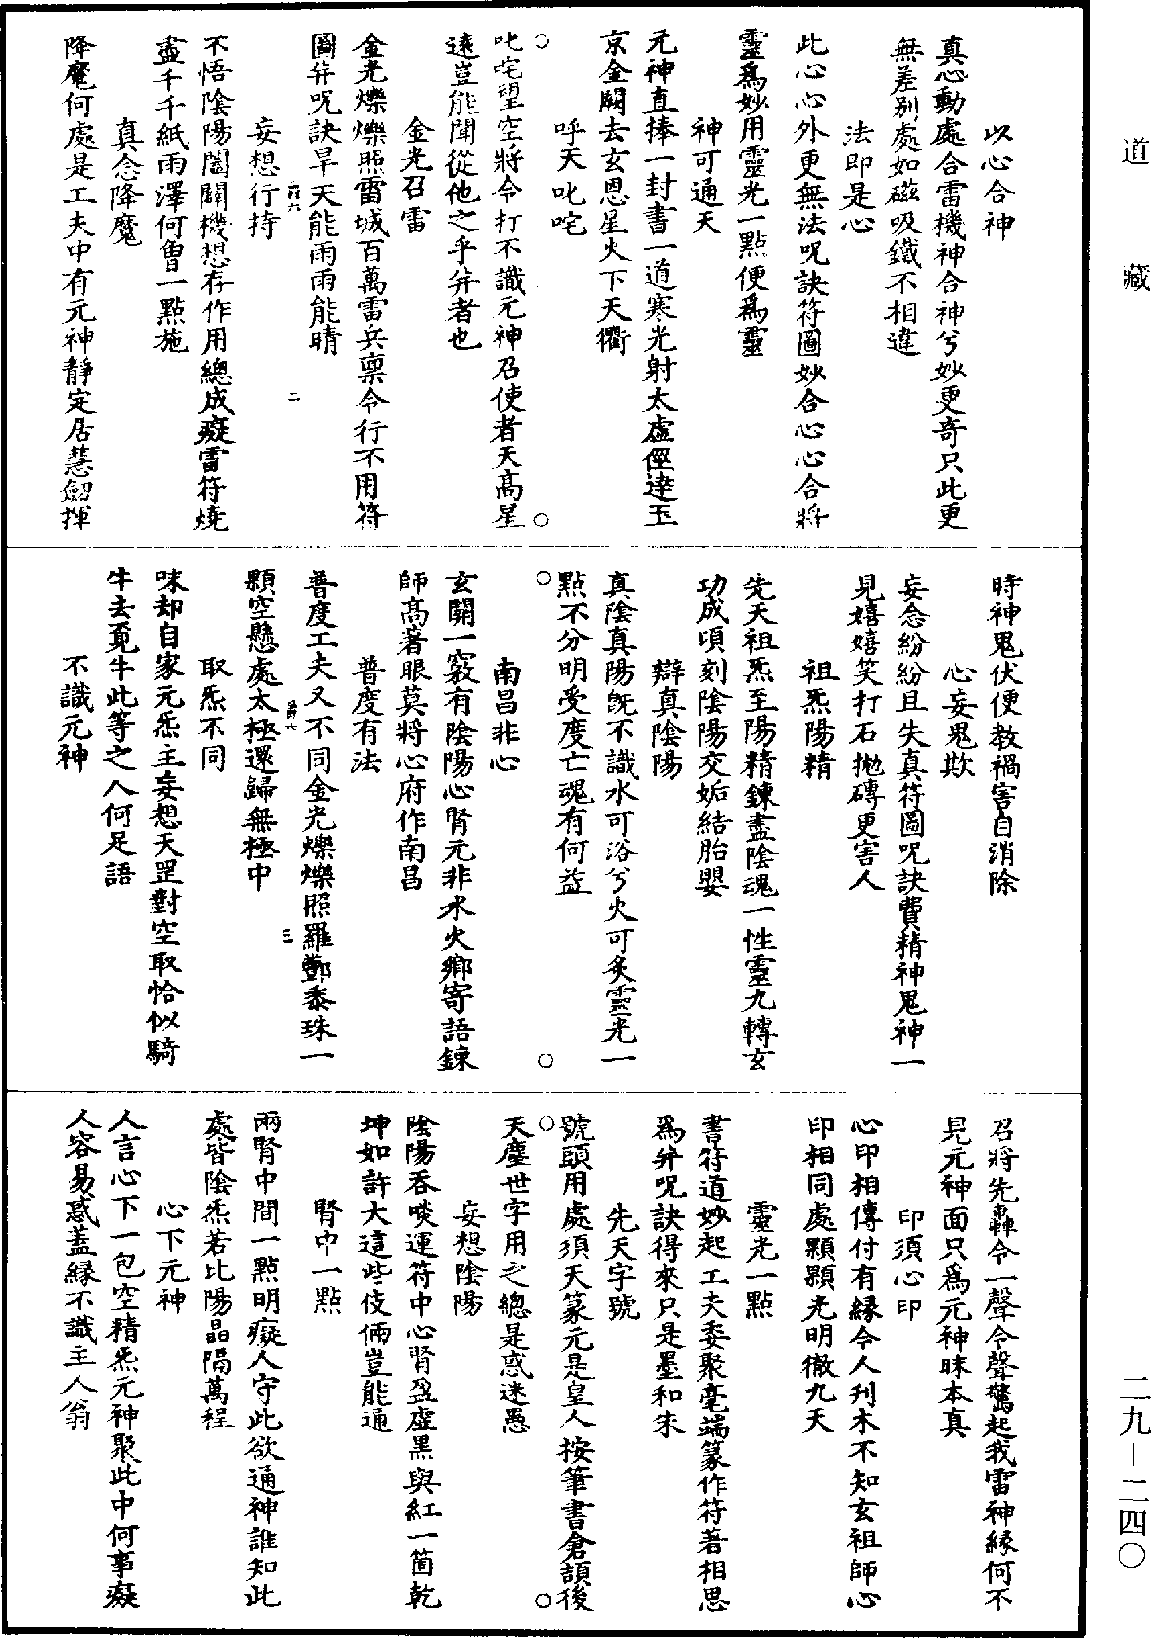 道藏
以心合神
真心動處合雷機神合神兮妙更奇只此更
無差别處如磁吸鐵不相違
法即是心
此心心外更無法呪訣符圖妙合心心合將
靈爲妙用靈光一點便爲靈
神可通天
元神直捧一封書一道寒光射太虛徑達玉
京金闕去玄恩星火下天衢
呼天叱咤
叱咤望空將令打不識元神召使者天髙星
遠豈能聞從他之乎并者也
金光召雷
金光爍爍照雷城百萬雷兵禀令行不用符
圖并呪訣旱天能雨雨能晴
二
妄想行持
不悟陰陽闔闢機想存作用總成癡雷符燒
盡千千紙雨澤何曾一點施
真念降魔
降魔何處是工夫中有元神靜定居慧劒揮
時神鬼伏便教禍害自消除
心妄鬼欺
妄念紛紛且失真符圖呪訣費精神鬼神一
見嬉嬉笑打石抛磚更害人
祖炁陽精
先天祖炁至陽精鍊盡陰魂一性靈九轉玄
功成頃刻陰陽交姤結胎嬰
辯真陰陽
真陰真陽旣不識水可浴兮火可炙靈光一
點不分明受度亡魂有何益
南昌非心
玄關一竅有陰陽心腎元非水火鄉寄語鍊
師髙著眼莫將心府作南昌
普度有法
普度工夫又不同金光爍爍照羅酆黍珠一
三
顆空懸處太極還歸無極中
取炁不同
味却自家元炁主妄想天罡對空取恰似騎
牛去覔牛此等之人何足語
不識元神
召將先轟令一聲令聲驚起我雷神緣何不
見元神面只爲元神昧本真
印須心印
心印相傳付有緣今人刋木不知玄祖師心
印相同處顆顆光明徹九天
靈光一點
書符道妙起工夫委聚毫端篆作符著相思
爲并呪訣得來只是墨和朱
先天字號
號頭用處須天篆元是皇人按筆書倉頡後
天塵世字用之總是惑迷愚
妄想陰陽
陰陽吞啖運符中心腎盈虛黑與紅一箇乾
坤如許大這些伎倆豈能通
腎中一點
兩腎中間一點明癡人守此欲通神誰知此
處皆陰炁若比陽晶隔萬程
心下元神
人言心下一包空精炁元神聚此中何事癡
人容易惑蓋緣不識主人翁
二九—二四〇